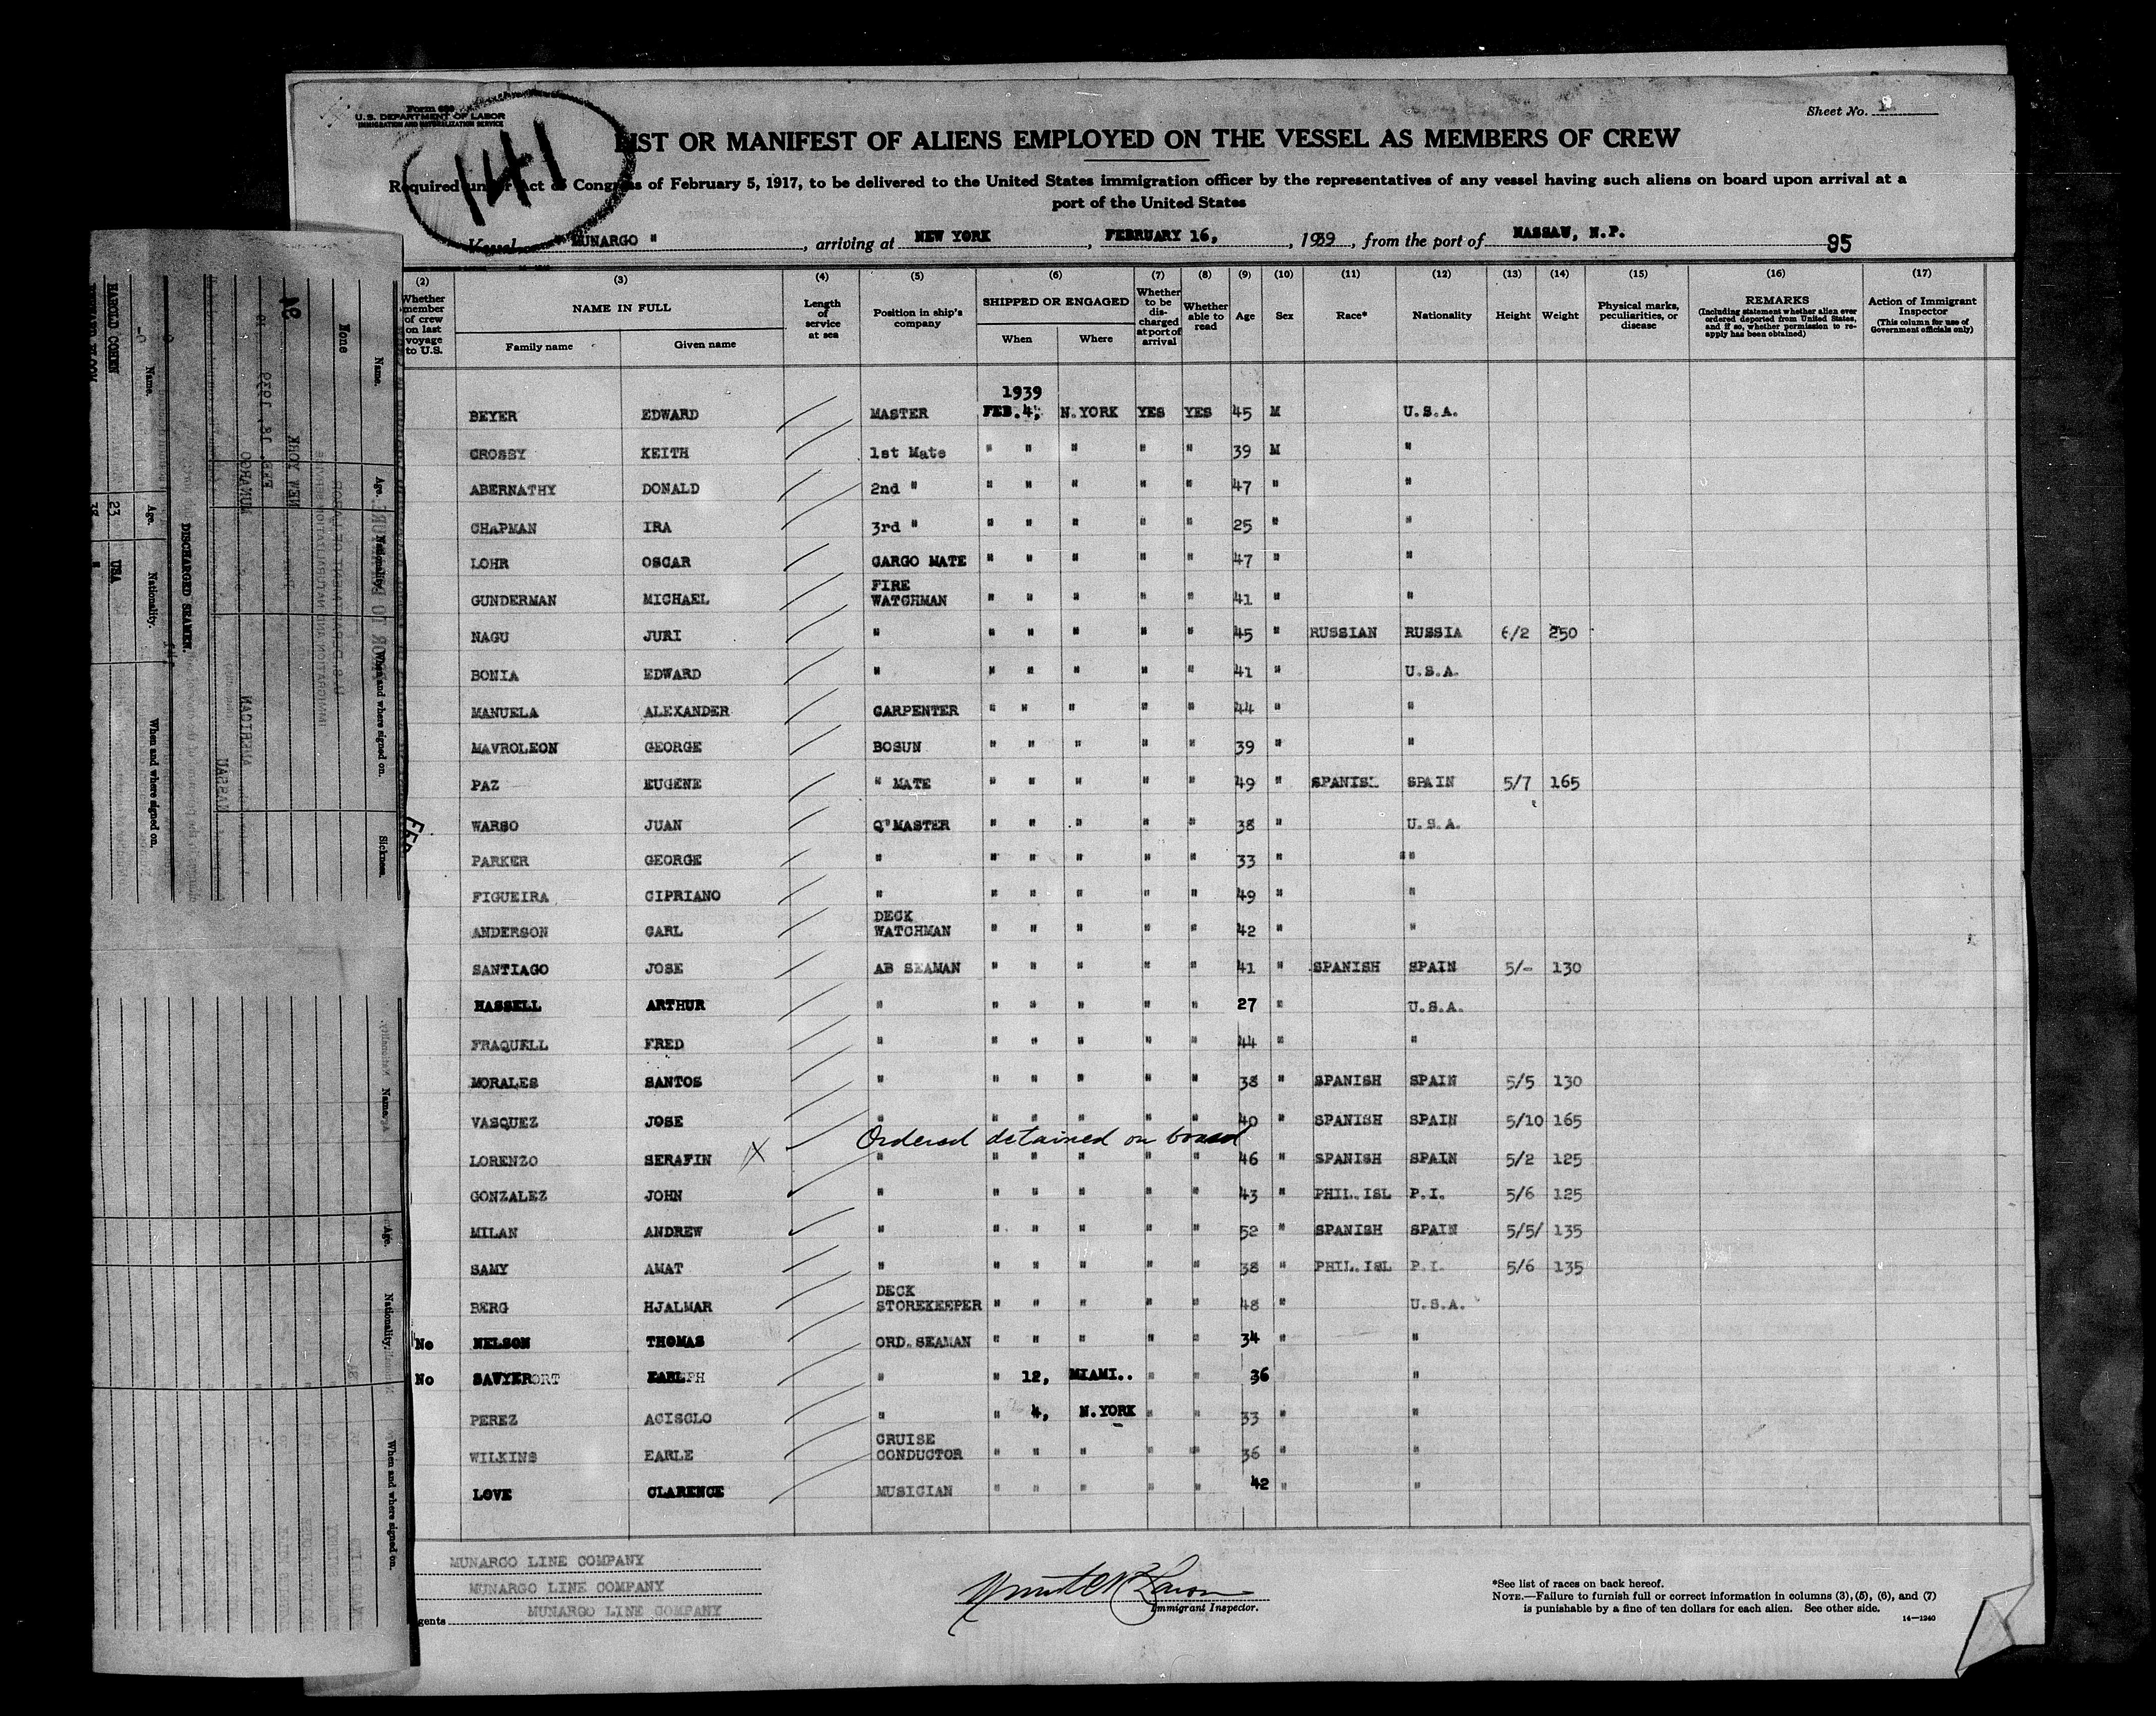 Form 689
U.S. DEPARTMENT OF LABOR
IMMIGRATION AND NATURALIZATION SERVICE
141
Sheet No. 1
LIST OR MANIFEST OF ALIENS EMPLOYED ON THE VESSEL AS MEMBERS OF CREW
Required under Act of Congress of February 5, 1917, to be delivered to the United States immigration officer by the representatives of any vessel having such aliens on board upon arrival at a
port of the United States
Vessel " MUNARGO " , arriving at NEW YORK , FEBRUARY 16, , 1939 , from the port of NASSAU, N.P. 95
(2) (3) (4) (5) (6) (7) (8) (9) (10) (11) (12) (13) (14) (15) (16) (17)
Whether member of crew on last voyage to U.S.
NAME IN FULL
Family name Given name
Length of service at sea
Position in ship's company
SHIPPED OR ENGAGED
When Where
Whether to be discharged at port of arrival
Whether able to read
Age Sex Race* Nationality Height Weight
Physical marks, peculiarities, or disease
REMARKS
(Including statement whether alien ever ordered deported from United States, and if so, whether permission to reapply has been obtained)
Action of Immigrant Inspector
(This column for use of Government officials only)
1939
BEYER EDWARD MASTER FEB. 4, N. YORK YES YES 45 M U.S.A.
CROSBY KEITH 1st Mate " " " " " 39 M "
ABERNATHY DONALD 2nd " " " " " " 47 " "
CHAPMAN IRA 3rd " " " " " " 25 " "
LOHR OSCAR CARGO MATE " " " " " 47 " "
GUNDERMAN MICHAEL FIRE WATCHMAN " " " " " 41 " "
NAGU JURI " " " " " " 45 " RUSSIAN RUSSIA 6/2 250
BONIA EDWARD " " " " " " 41 " U.S.A.
MANUELA ALEXANDER CARPENTER " " " " " 44 " "
MAVROLEON GEORGE BOSUN " " " " " 39 " "
PAZ EUGENE " MATE " " " " " 49 " SPANISH SPAIN 5/7 165
WARSO JUAN Q"MASTER " " " " " 38 " U.S.A.
PARKER GEORGE " " " " " " 33 " ""
FIGUEIRA CIPRIANO " " " " " " 49 " "
ANDERSON CARL DECK WATCHMAN " " " " " 42 " "
SANTIAGO JOSE AB SEAMAN " " " " " 41 " SPANISH SPAIN 5/- 130
HASSELL ARTHUR " " " " " " 27 " U.S.A.
FRAQUELL FRED " " " " " " 44 " "
MORALES SANTOS " " " " " " 38 " SPANISH SPAIN 5/5 130
VASQUEZ JOSE " " " " " " 40 " SPANISH SPAIN 5/10 165
Ordered detained on board
LORENZO SERAFIN X " " " " " " 46 " SPANISH SPAIN 5/2 125
GONZALEZ JOHN " " " " " " 43 " PHIL. ISL P.I. 5/6 125
MILAN ANDREW " " " " " " 52 " SPANISH SPAIN 5/5/ 135
SAMY AMAT " " " " " " 38 " PHIL. ISL P.I. 5/6 135
BERG HJALMAR DECK STOREKEEPER " " " " " 48 " U.S.A.
No NELSON THOMAS ORD. SEAMAN " " " " " 34 " "
No SAWYER EARL " " 12, MIAMI.. " " 36 "
PEREZ ACISCLO " " 4, N. YORK " " 33 " "
WILKINS EARLE CRUISE CONDUCTOR " " " " " 36 " "
LOVE CLARENCE MUSICIAN " " " " " 42 " "
MUNARGO LINE COMPANY
MUNARGO LINE COMPANY
gents MUNARGO LINE COMPANY
Immigrant Inspector.
*See list of races on back hereof.
NOTE.—Failure to furnish full or correct information in columns (3), (5), (6), and (7)
is punishable by a fine of ten dollars for each alien. See other side.
14—1240
DISCHARGED SEAMEN.
Name. Age. Nationality. When and where signed on.
HAROLD COHEN 23 USA
Name. Age. Nationality. When and where signed on. Sickness.
None
NEW YORK
FEB. 18, 1939
MUNARGO
AMERICAN
NASSAU
Name. Age. Nationality. When and where signed on.